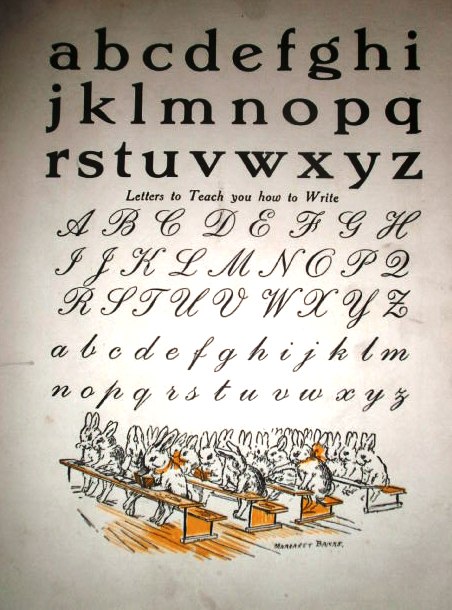 abcdefghi
jklmnopq
rstuvwxyz
Letters to Teach you how to Write
A B C D E F G H
I J K L M N O P Q
R S T U V W X Y Z
a b c d e f g h i j k l m
n o p q r s t u v w x y z
MARGARET